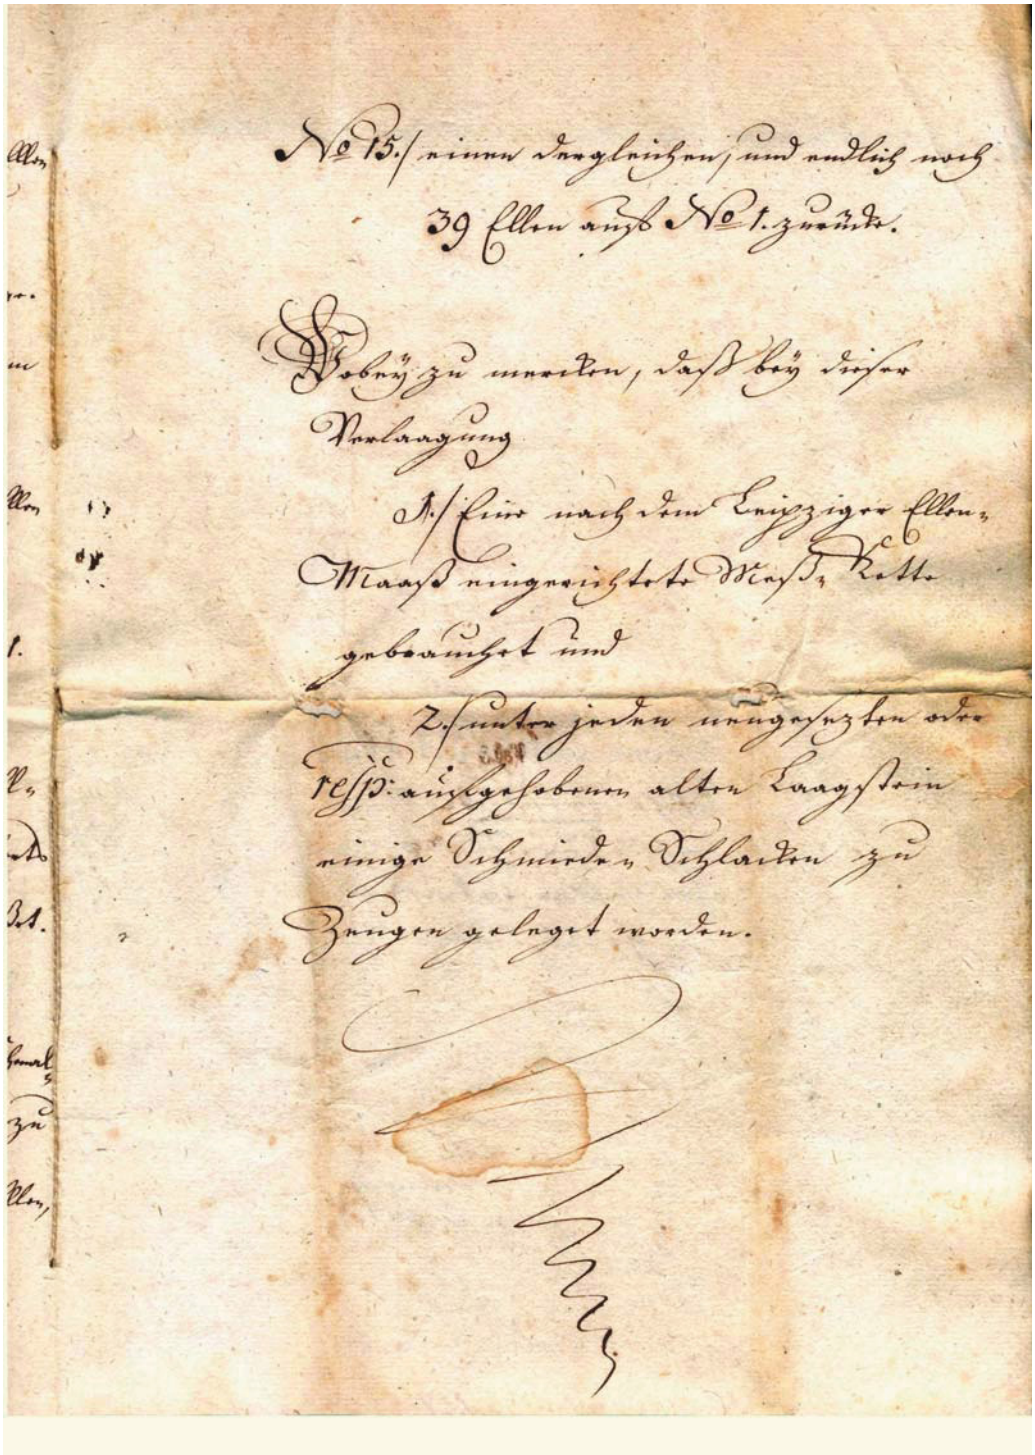 No 15./ einen dergleichen, und endlich noch
39 Ellen auf No 1. zurücke.
Wobey zu mercken, daß bey dieser
Verlaagung
1./ Eine nach dem Leipziger Ellen-
Maaß eingerichtete Meß- Kette
gebrauchet und
2./ unter jeden neugesezten oder
resp: aufgehobenen alten Laagstein
einige Schmiede- Schlacken zu
Zeugen geleget worden.